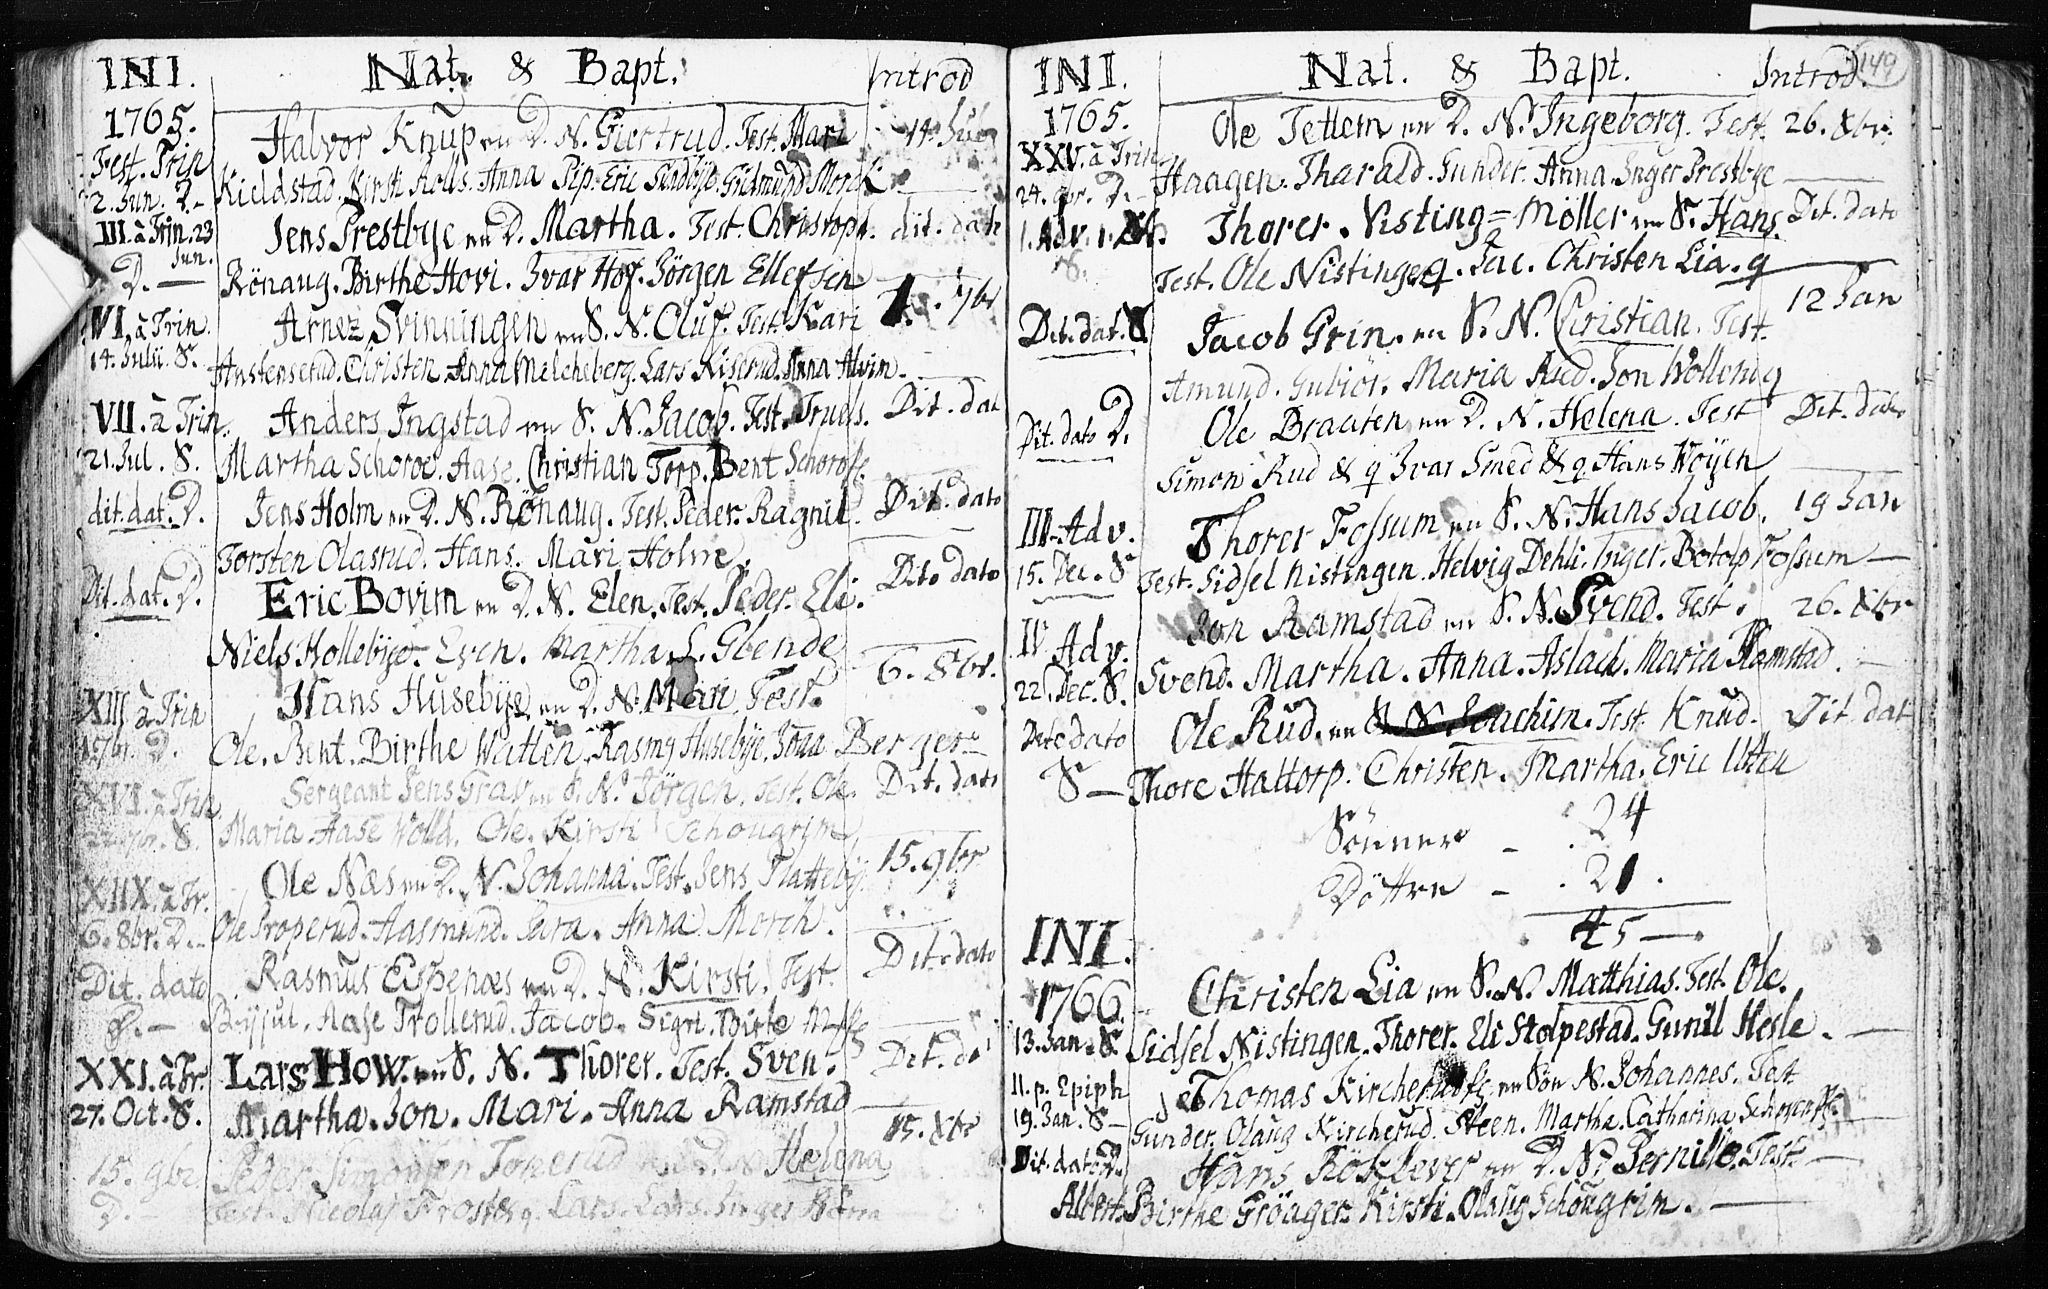 INI. Nat. & Bapt. Introd
1765.
Fest. Trin
2. Jun. D. -
Halvor Knup en D. N. Giertrud. Test. Mari
Kieldstad. Kirsti Rolls. Anna Pip. Eric Sandbye. Gudmund Morch
III. à Trin. 23 Jun.
D. —
Jens Prestbye en D. Martha. Test. Christoph. dit. dat
Rönaug. Birthe Hovi. Ivar Hof. Jörgen Ellefsen
VI. à Trin.
14. Julii. S.
Arne Svinningen en S. N. Oluf. Test. Kari 1. 7br
Austenserud. Christen. Anna Melcheberg. Lars Kiserud. Anna Alvim.
VII. à Trin.
21. Jul. S.
Anders Ingstad en S. N. Jacob. Test. Truels. Dit. dat
Martha Schoroe. Aase. Christian Torp. Bent Schorofs.
dit. dat. D.
Jens Holm en D. N. Rönaug. Test. Peder. Ragnil. Dit. dato
Torsten Olasrud. Hans. Mari Holm.
Dit. dat. D.
Eric Bovim en D. N. Elen. Test. Peder. Eli. Dito dato
Niels Hollebye. Even. Martha S. Glende
XIII à Trin
1. 7br. D.
Hans Husebye en D. N. Mari. Test. 6. 8br.
Ole. Bent. Birthe Watlen. Rasmg Husebye. Berger
XVI. à Trin
22. 7br. S.
Sergeant Jens Grav en S. N. Jörgen. Test. Ole. Dit. dato
Maria. Aase Wolld. Ole. Kirsti Schougrim
XIIX. à Tr.
6. 8br. D. -
Ole Næs en D. N. Johanna. Test. Jens Flattebye 15. 9br
Ole Properud. Aasmund. Sara. Anna Morch.
Dit. dato
Rasmus Espenæs en D. N. Kirsti. Test. Dit. dato
Aase Trollerud. Jacob. Sigri. Birte
XXI. à Tr.
27. Oct. S.
Lars How. en S. N. Thorer. Test. Sven. Dit. da
Martha. Jon. Mari. Anna Ramstad
15. 9br
D. -
Peder Simonsen Tonerud en D. N. Helena 15. Xbr
Test. Nicolaj Frosteg. Lars. Lars. Inger
INI. Nat. & Bapt. Introd. 149
1765.
XXV. à Trin
24. 9br. D. -
Ole Tettem en D. N. Ingeborg. Test. 26. Xbr.
Haagen. Tharald. Gunder. Anna. Inger Prestbye
1. Adv. 1. Xb.
S.
Thorer. Nisting=Möller en S. Hans. Dit. dato
Test. Ole Nistingeq. Jac. Christen Lia. q
Dit. dat. S
Jacob Grin. en S. N. Christian. Test. 12 Jan
Amund. Gubiör. Maria Rud. Jon Wölleng
Dit. dato D.
Ole Braaten en D. N. Helena. Test Dit. dato
Simon Rud & q Ivar Smed & q Hans Wöyen
III. Adv.
15. Dec. S
Thorer Fossum en S. N. Hans Jacob. 19 Jan
Test. Sidsel Nistingen. Helvig Dehli. Inger. Botolp Fossum —
IV Adv.
22. Dec. S.
Jon Ramstad en S. N. Svend. Test. 26. Xbr
Svend. Martha. Anna. Aslach. Maria Ramstad.
Dito dato
S —
Ole Rud. en S. N. Joachim. Test. Knud. Dit. dat
Thore Hattorp. Christen. Martha. Eric Utten
Sönner - . 24
Döttre - . 21.
45 —
INI.
1766.
13. Jan. S.
Christen Lia en S. N. Matthias. Test. Ole.
Sidsel Nistingen. Thorer. Eli Stolpestad. Gunil Hesle. —
II. p. Epiph
19. Jan. S —
Thomas Kircherudfs en Sön N. Johannes. Test
Gunder. Olaug Kircherud. Steen. Martha. Catharina
Dit. dato D.
Hans Rösslever en D. N. Pernille. Test. —
Albert. Birthe Gröager. Kirsti. Olaug Schougrim. —